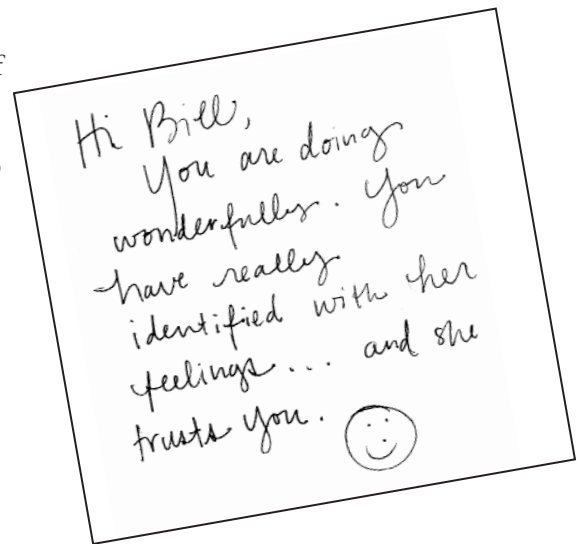 Hi Bill,
You are doing
wonderfully. You
have really
identified with her
feelings... and she
trusts you.